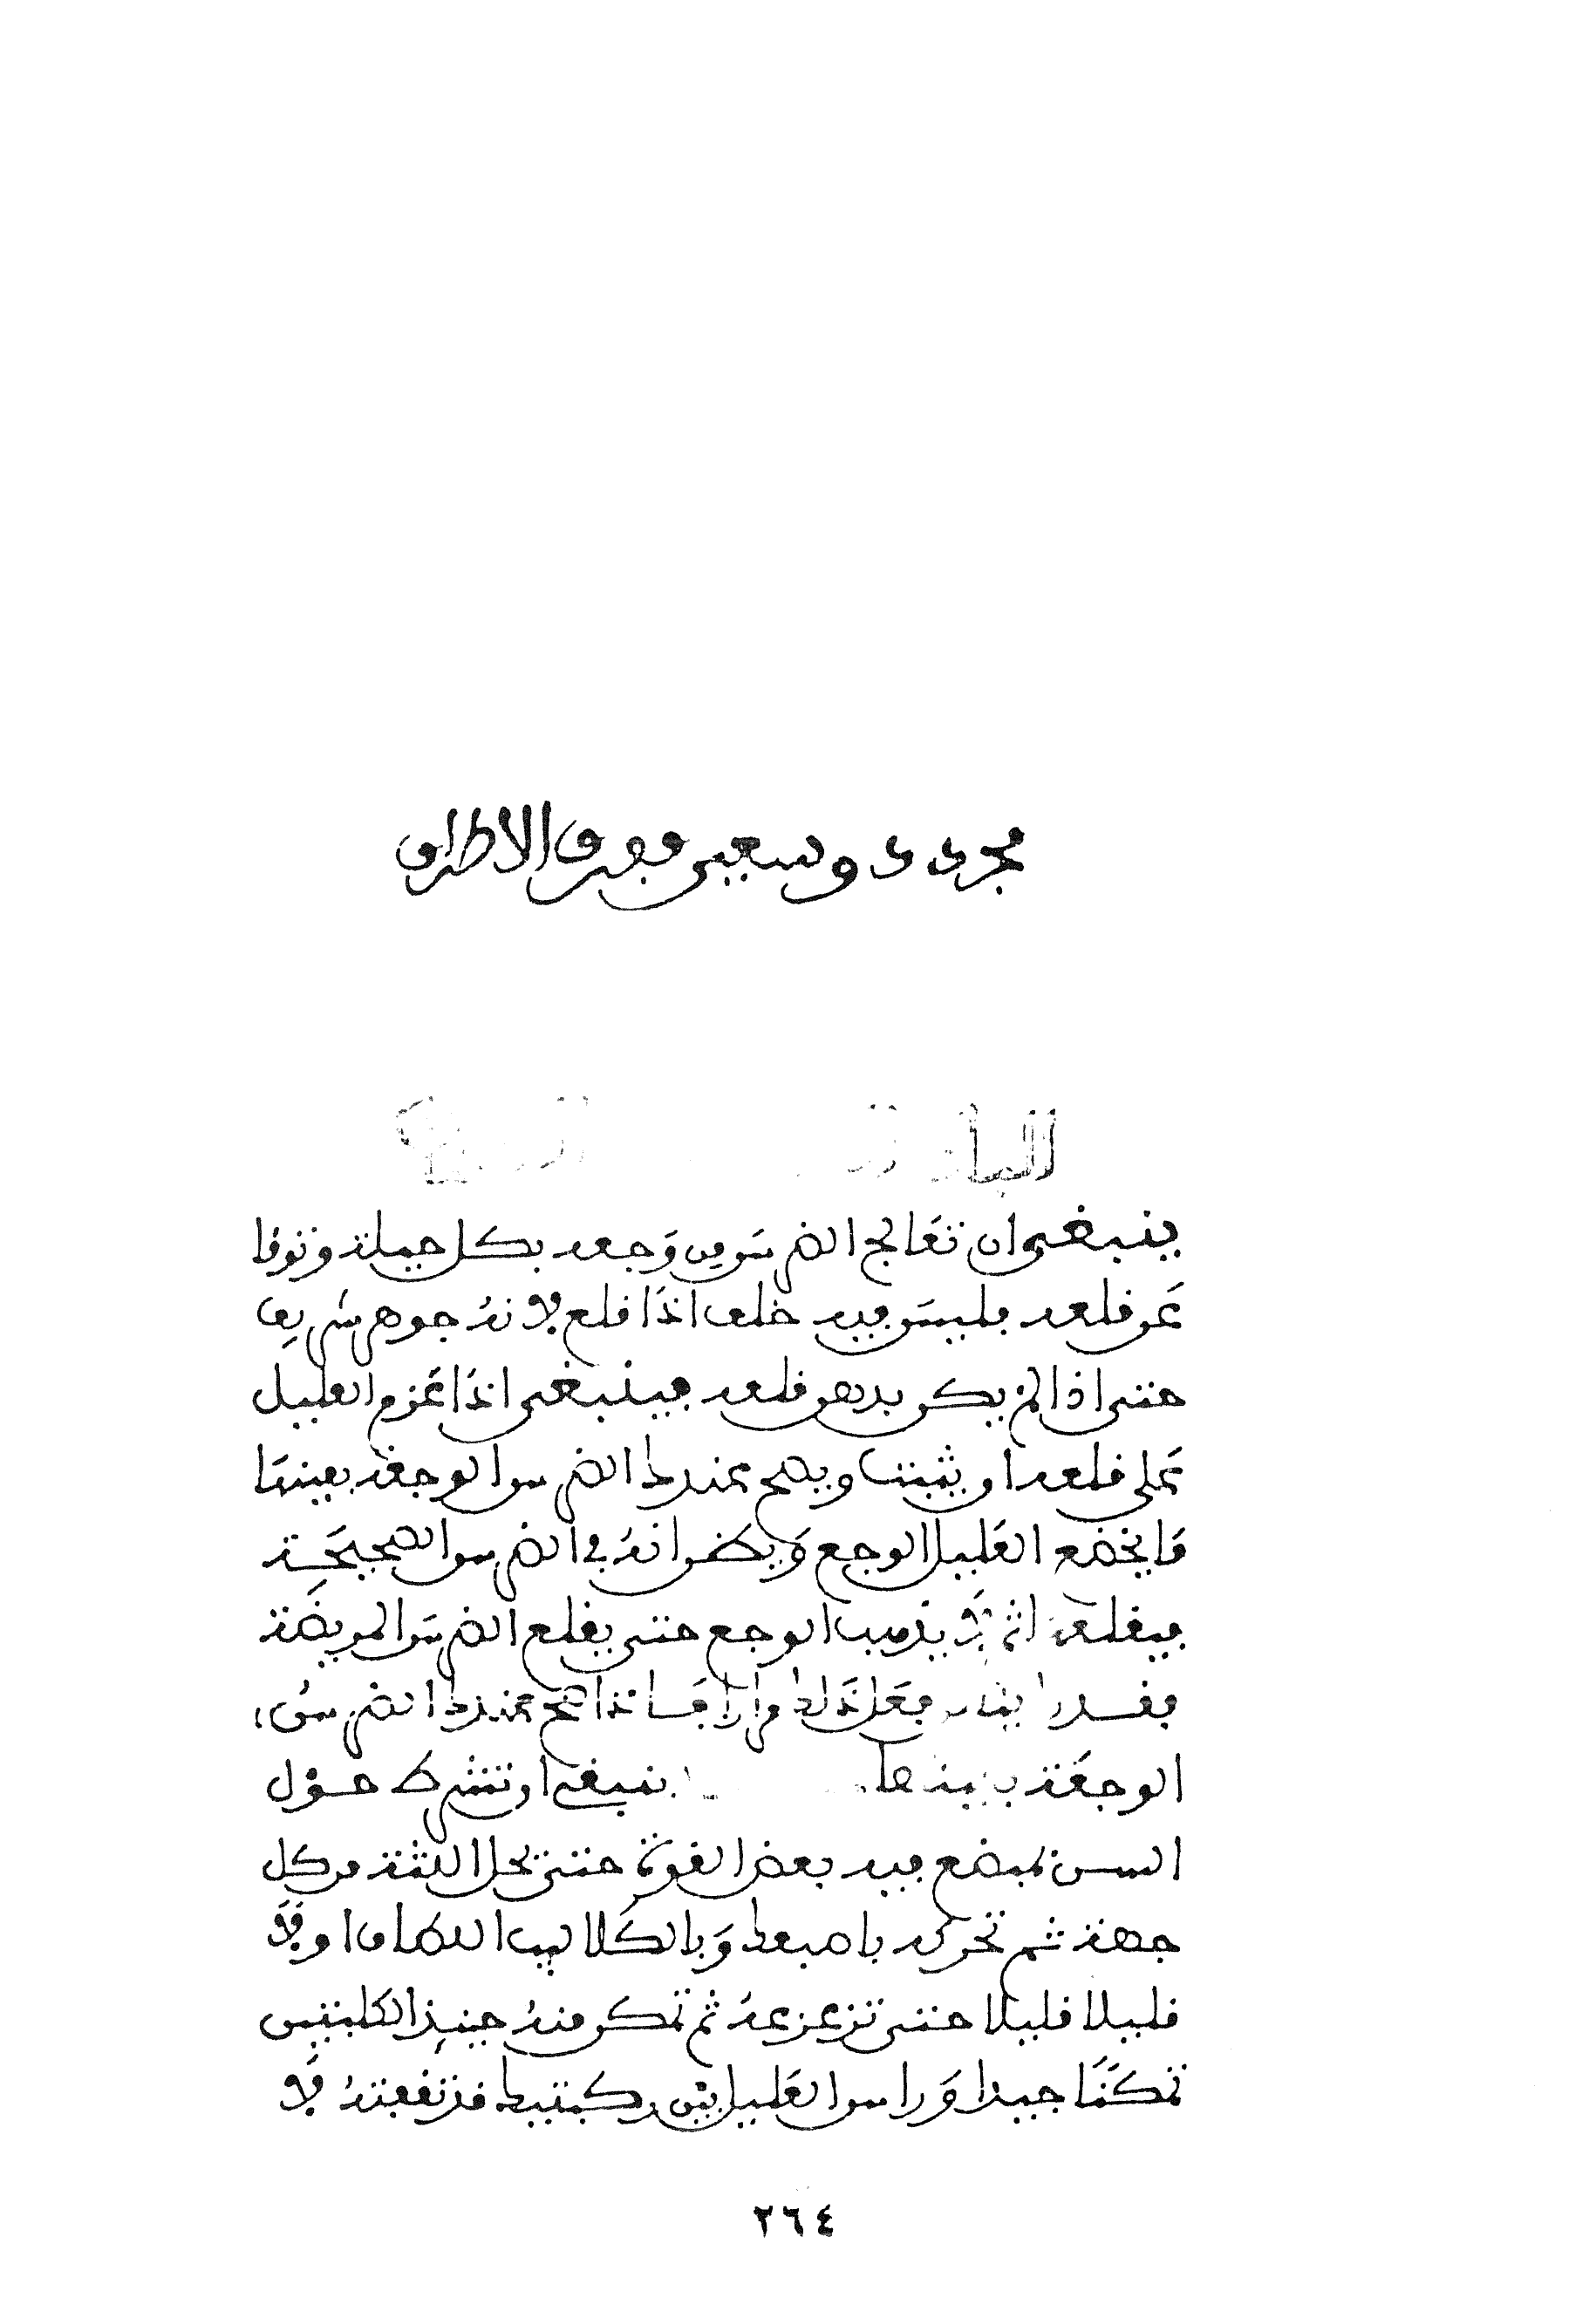 مجرد دو سعبين مصرف الاطراف
البا
ينبغي ان تعالج الضرس من وجعه بكل حيلة وتوقا
عن قلعه فليس فيه خلف اذا قلع لانه جوهر شريف
حتى اذا لم يكن بد من قلعه فينبغي اذا عزم العليل
على قلعه ان يثبت ويصح عندك الضرس الوجعة بعينها
ما يخدع العليل الوجع ويظن انه في الضرس الصحيحة
فيقلعها ثم لا يذهب الوجع حتى يقلع الضرس المريضة
فقد راينا فعل ذلك مرارا فاذا صح عندك الضرس
الوجعة بعينها ينبغي ان تشرط حول
السن بمبضع فيه بعض القوة حتى تحل اللثة من كل
جهة ثم تحركه باصبعك وبالكلاليب اللطاف اولا
قليلا قليلا حتى تزعزعه ثم تمكن منه حينئذ الكلبتين
تمكنا جيدا وراس العليل بين ركبتيك قد ثقفته لا
٢٦٤